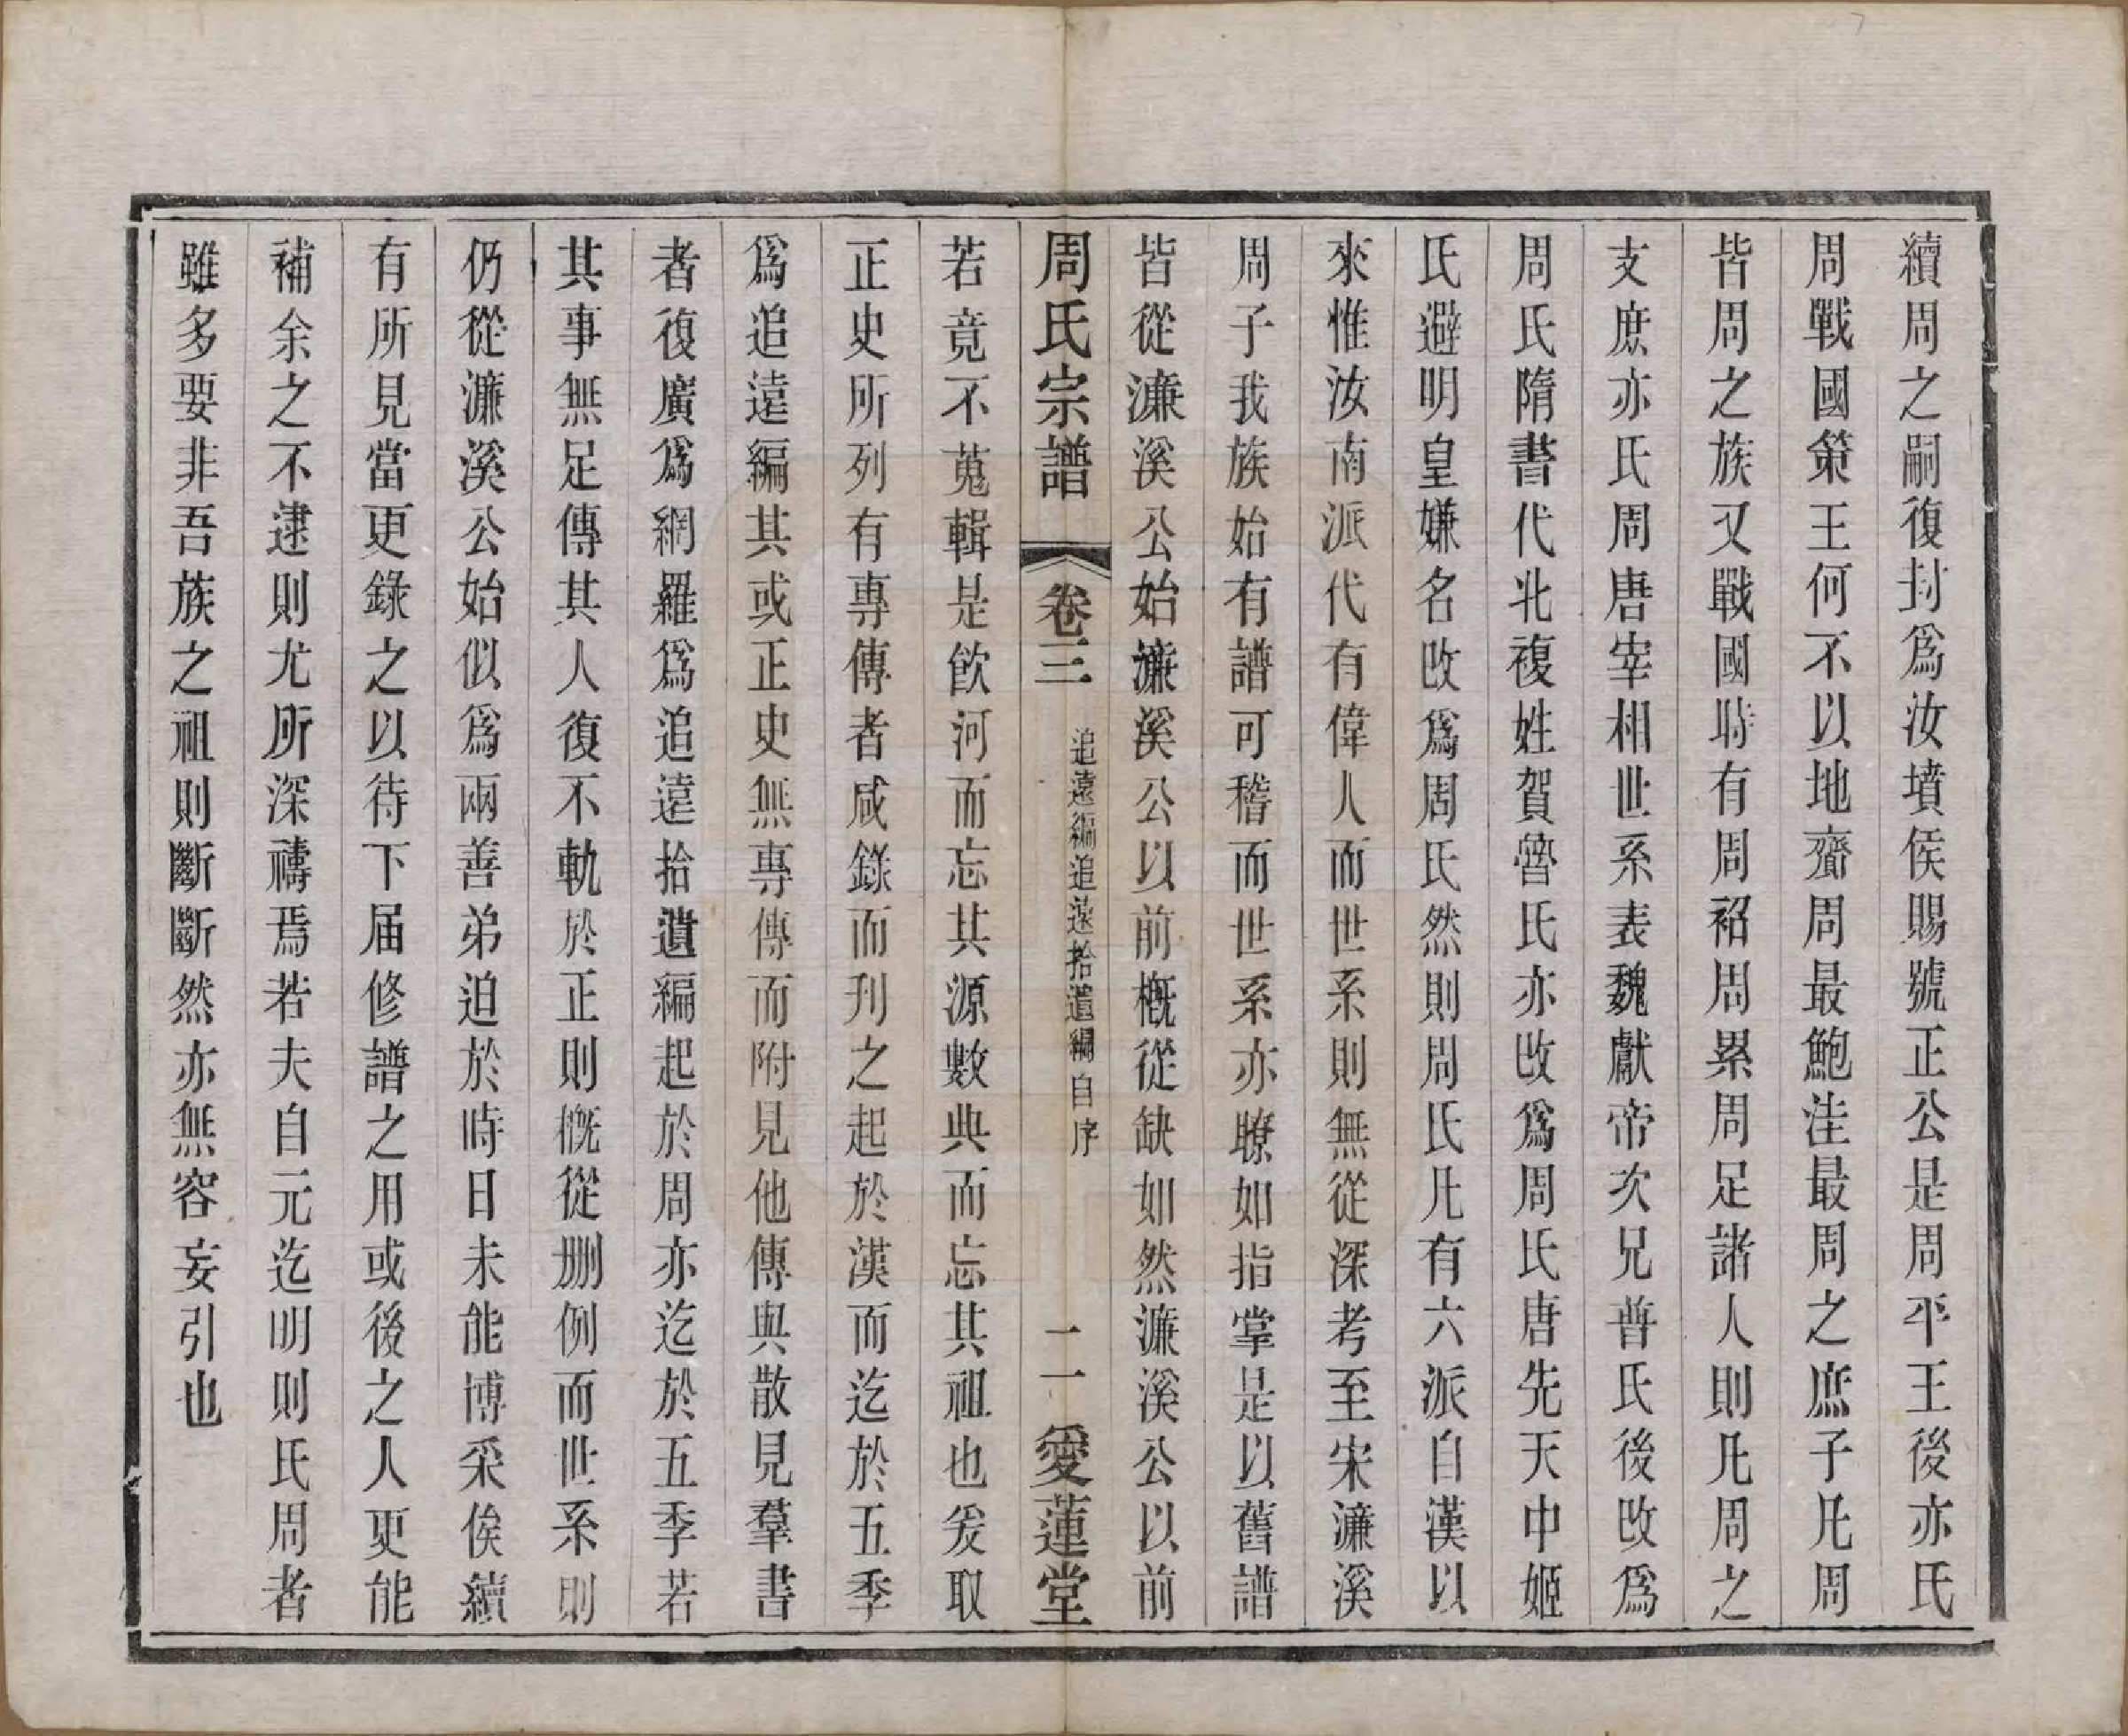 續周之嗣復封爲汝墳侯賜號正公是周平王後亦氏
周戰國策王何不以地齎周最鮑注最周之庶子凡周
皆周之族又戰國時有周袑周累周足諸人則凡周之
支庶亦氏周唐宰相世系表魏獻帝次兄普氏後改爲
周氏隋書代北複姓賀魯氏亦改爲周氏唐先天中姬
氏避明皇嫌名改爲周氏然則周氏凡有六派自漢以
來惟汝南派代有偉人而世系則無從深考至宋濂溪
周子我族始有譜可稽而世系亦瞭如指掌是以舊譜
皆從濂溪公始濂溪公以前槪從缺如然濂溪公以前
周氏宗譜 卷三 追遠編追遠拾遺編自序 二 愛蓮堂
若竟不蒐輯是飮河而忘其源數典而忘其祖也爰取
正史所列有專傳者咸錄而刋之起於漢而迄於五季
爲追遠編其或正史無專傳而附見他傳與散見羣書
者復廣爲網羅爲追遠拾遺編起於周亦迄於五季若
其事無足傳其人復不軌於正則槪從删例而世系則
仍從濂溪公始似爲兩善弟迫於時日未能博采俟續
有所見當更錄之以待下屆修譜之用或後之人更能
補余之不逮則尤所深禱焉若夫自元迄明則氏周者
雖多要非吾族之祖則斷斷然亦無容妄引也